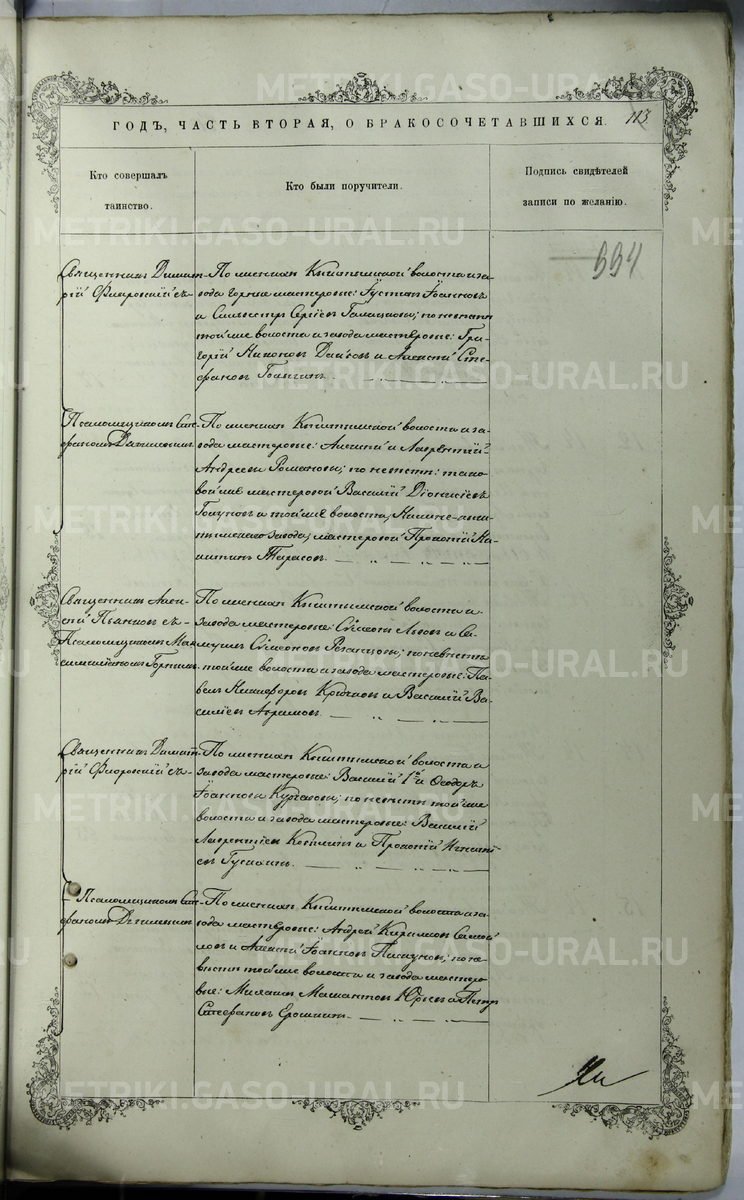 METRIKI.GASO-URAL.RU
ГОДЪ, ЧАСТЬ ВТОРАЯ, О БРАКОСОЧЕТАВШИХСЯ.
113
Кто совершалъ
таинство.
Кто были поручители.
Подпись свидѣтелей
записи по желанію.
994
Священникъ Димит-
рій Флоровскій съ-
По женихѣ Кыштымской волости и за-
вода горные мастеровые: Іустинъ Іоанновъ
и Сильвестръ Сергіевъ; по невѣстѣ
той же волости и завода мастеровые: Гри-
горій Никоновъ и Алексій Сте-
фановъ
Псаломщикомъ Сте-
фаномъ
По женихѣ Кыштымской волости и за-
вода мастеровые: и Лаврентій
Андреевы Романовы; по невѣстѣ: тако-
вой же мастеровой Василій Діонисіевъ
и той же волости, Нижне-кыш-
тымскаго завода, мастеровой Прокопій Ни-
китинъ Тарасовъ.
Священникъ Алек-
сій Пьянковъ съ-
Псаломщикомъ Мак-
симиліаномъ
По женихѣ Кыштымской волости и
завода мастеровые: Сѵмеонъ Львовъ и Са-
муилъ Сѵмеоновъ; по невѣстѣ
той же волости и завода мастеровые: Па-
велъ Никифоровъ Крючковъ и Василій Ва-
силіевъ Абрамовъ.
Священникъ Димит-
рій Флоровскій съ-
По женихѣ Кыштымской волости и
завода мастеровые: Василій 1й и Ѳеодоръ
Іоанновы; по невѣстѣ той же
волости и завода мастеровые: Василій
Лаврентіевъ и Прокопій Игнаті-
евъ
Псаломщикомъ Сте-
фаномъ
По женихѣ Кыштымской волости и за-
вода мастеровые: Андрей Кирилловъ Самой-
ловъ и Алексій Іоанновъ; по не-
вѣстѣ той же волости и завода мастеро-
вые: Михаилъ Мамантовъ Юрьевъ и Петръ
Стефановъ Ерошкинъ